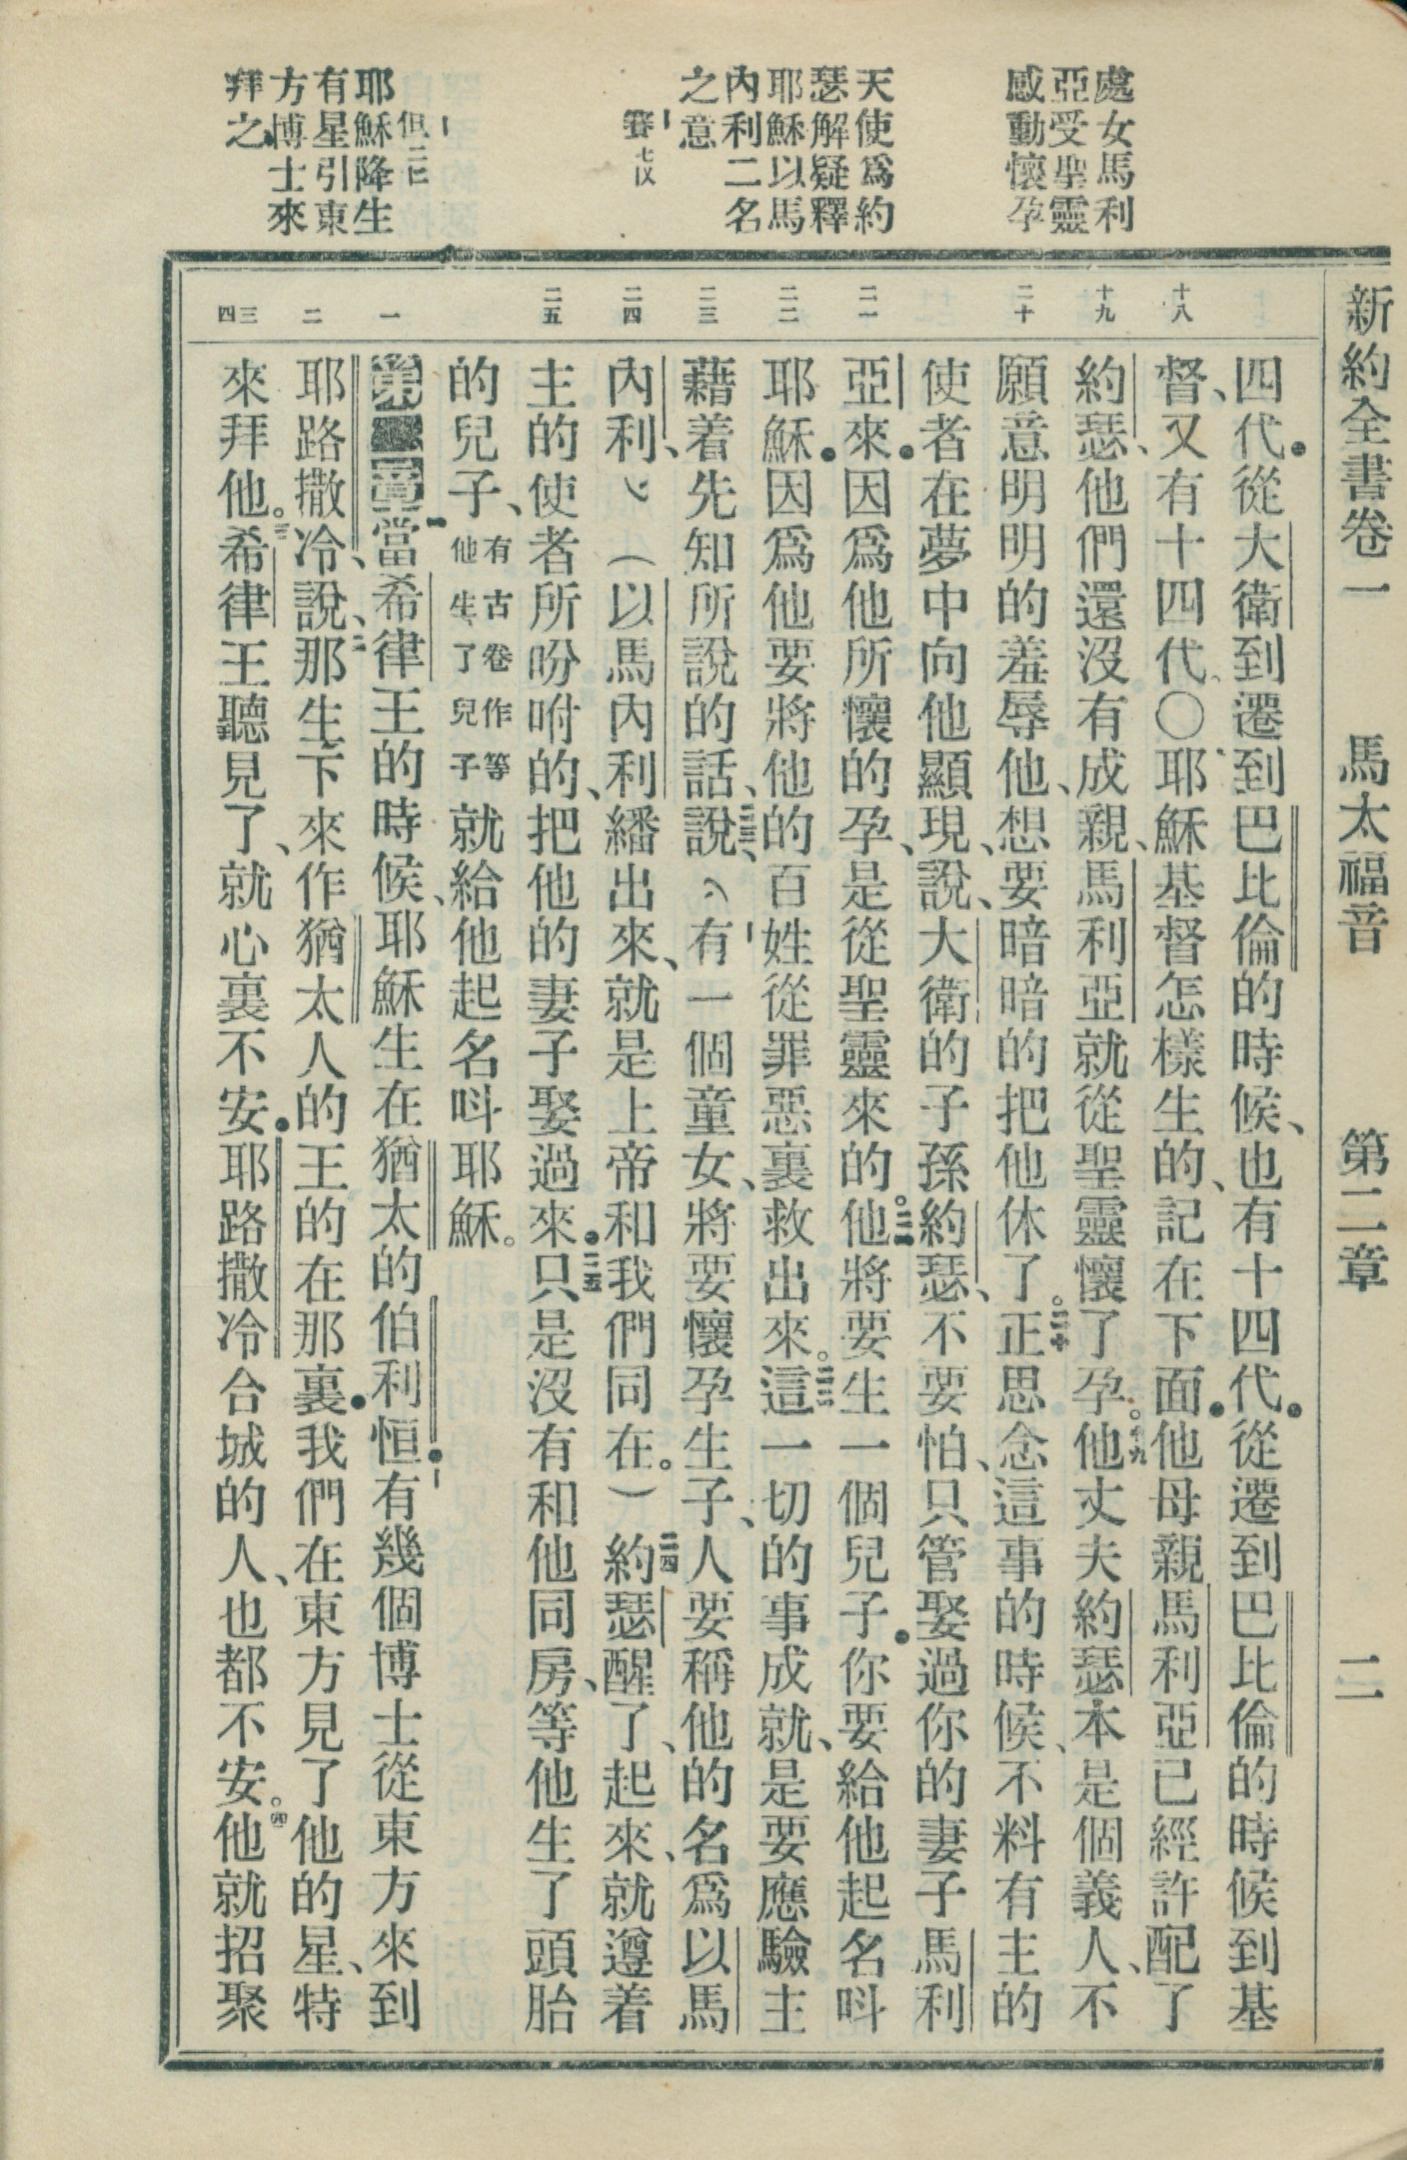 新約全書卷一 馬太福音 第二章 二
處女馬利
亞受聖靈
感動懷孕
天使爲約
瑟解疑釋
耶穌以馬
內利二名
之意
賽七
耶穌降生
有星引東
方博士來
拜之
十八
十九
二十
二一
二二
二三
二四
二五
一
二
三
四
四代●從大衛到遷到巴比倫的時候、也有十四代●從遷到巴比倫的時候到基
督、又有十四代。○耶穌基督怎樣生的、記在下面●他母親馬利亞已經許配了
約瑟、他們還沒有成親、馬利亞就從聖靈懷了孕。十九他丈夫約瑟本是個義人、不
願意明明的羞辱他、想要暗暗的把他休了。二十正思念這事的時候、不料有主的
使者在夢中向他顯現、說、大衛的子孫約瑟、不要怕、只管娶過你的妻子馬利
亞來●因爲他所懷的孕、是從聖靈來的。二一他將要生一個兒子●你要給他起名呌
耶穌●因爲他要將他的百姓從罪惡裏救出來。二二這一切的事成就、是要應驗主
藉着先知所說的話、說、二三〵有一個童女、將要懷孕生子、人要稱他的名爲以馬
內利、〵（以馬內利繙出來、就是上帝和我們同在。）二四約瑟醒了、起來、就遵着
主的使者所吩咐的、把他的妻子娶過來●二五只是沒有和他同房、等他生了頭胎
的兒子、有古卷作等他生了兒子就給他起名呌耶穌。
第二章一當希律王的時候、耶穌生在猶太的伯利恒●有幾個博士從東方來到
耶路撒冷、說、二那生下來作猶太人的王的在那裏●我們在東方見了他的星、特
來拜他。三希律王聽見了、就心裏不安●耶路撒冷合城的人、也都不安。四他就招聚